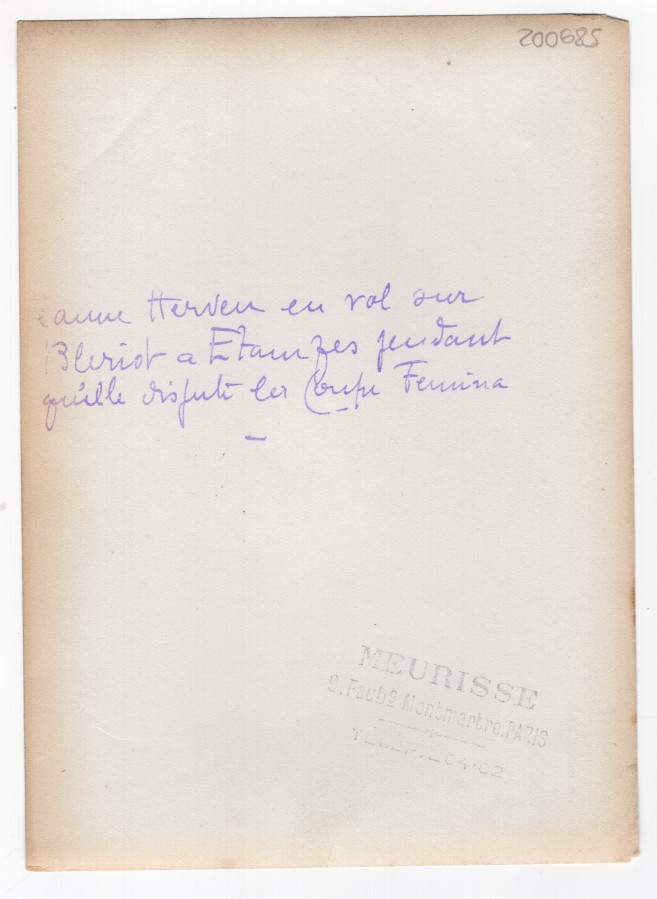 200685
eanne Herveu en vol sur
Bleriot a Etampes pendant
qu'elle dispute la Coupe Femina
MEURISSE
9. Faubg Montmartre. PARIS